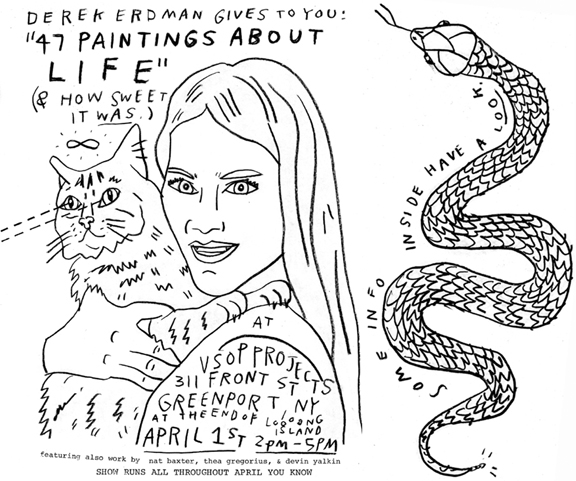 DEREK ERDMAN GIVES TO YOU:
"47 PAINTINGS ABOUT
LIFE"
(& HOW SWEET
IT WAS.)
∞
AT
VSOP PROJECTS
311 FRONT ST STS
GREENPORT NY
AT THE END OF LOOOONG
ISLAND
APRIL 1ST 2PM-5PM
featuring also work by nat baxter, thea gregorius, & devin yalkin
SHOW RUNS ALL THROUGHOUT APRIL YOU KNOW
SOME INFO INSIDE HAVE A LOOK.